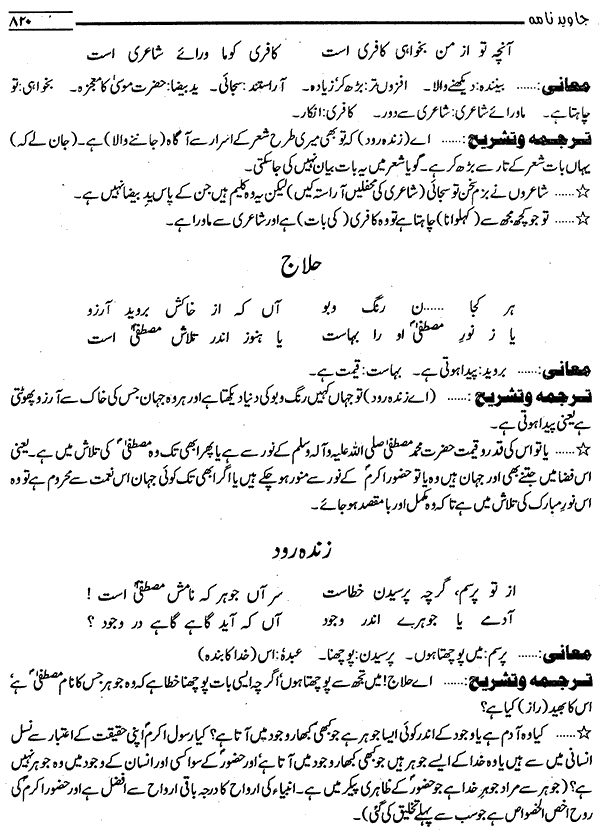 جاوید نامہ ۸۲۰
آنچہ تو از من بخواہی کافری است کافری کو ما ورائے شاعری است
معانی:...... بینندہ: دیکھنے والا۔ افزوں تر: بڑھ کر، زیادہ۔ آراستند: سجائی۔ ید بیضا: حضرت موسیٰؑ کا معجزہ۔ بخواہی: تو
چاہتا ہے۔ ماورائے شاعری: شاعری سے دور۔ کافری: انکار۔
ترجمہ وتشریح:...... اے (زندہ رود) کہ تو بھی میری طرح شعر کے اسرار سے آگاہ (جاننے والا) ہے۔ (جان لے کہ)
یہاں بات شعر کے تار سے بڑھ کر ہے۔ گویا شعر میں یہ بات بیان نہیں کی جا سکتی۔
☆...... شاعروں نے بزم سخن تو سجائی (شاعری کی محفلیں آراستہ کیں) لیکن یہ وہ کلیم ہیں جن کے پاس ید بیضا نہیں ہے۔
☆...... تو جو کچھ مجھ سے (کہلوانا) چاہتا ہے تو وہ کافری (کی بات) ہے اور شاعری سے ماورا ہے۔
حلاج
ہر کجا ......ن رنگ و بو آں کہ از خاکش بروید آرزو
یا ز نور مصطفیٰؐ او را بہاست یا ہنوز اندر تلاش مصطفیٰؐ است
معانی:...... بروید: پیدا ہوتی ہے۔ بہاست: قیمت ہے۔
ترجمہ وتشریح:...... (اے زندہ رود) تو جہاں کہیں رنگ و بو کی دنیا دیکھتا ہے اور ہر وہ جہان جس کی خاک سے آرزو پھوٹتی
ہے یعنی پیدا ہوتی ہے۔
☆...... یا تو اس کی قدر و قیمت حضرت محمد مصطفیٰ صلی اللہ علیہ وآلہ وسلم کے نور سے ہے یا پھر ابھی تک وہ مصطفیٰؐ کی تلاش میں ہے۔ یعنی
اس فضا میں جتنے بھی اور جہان ہیں وہ یا تو حضور اکرمؐ کے نور سے منور ہو چکے ہیں یا اگر ابھی تک کوئی جہان اس نعمت سے محروم ہے تو وہ
اس نور مبارک کی تلاش میں ہے تاکہ وہ مکمل اور بامقصد ہو جائے۔
زندہ رود
از تو پرسم، گرچہ پرسیدن خطاست سر آں جوہر کہ نامش مصطفیٰؐ است !
آدمے یا جوہرے اندر وجود آں کہ آید گاہے گاہے در وجود ؟
معانی:...... پرسم: میں پوچھتا ہوں۔ پرسیدن: پوچھنا۔ عبدہٗ: اس (خدا کا بندہ)
ترجمہ وتشریح:...... اے حلاج! میں تجھ سے پوچھتا ہوں، اگرچہ ایسی بات پوچھنا خطا ہے کہ وہ جوہر جس کا نام مصطفیٰؐ ہے
اس کا بھید (راز) کیا ہے؟
☆...... کیا وہ آدم ہے یا وجود کے اندر کوئی ایسا جوہر ہے جو کبھی کبھار وجود میں آتا ہے؟ کیا رسول اکرمؐ اپنی حقیقت کے اعتبار سے نسل
انسانی میں سے ہیں یا وہ خدا کے ایسے جوہر ہیں جو کبھی کبھار وجود میں آتا ہے اور حضورؐ کے سوا کسی اور انسان کے وجود میں وہ جوہر نہیں
ہے؟ (جوہر سے مراد جوہر خدا ہے جو حضورؐ کے ظاہری پیکر میں ہے۔ انبیاء کی ارواح کا درجہ باقی ارواح سے افضل ہے اور حضور اکرمؐ کی
روح اخص الخصواص ہے جو سب سے پہلے تخلیق کی گئی)۔